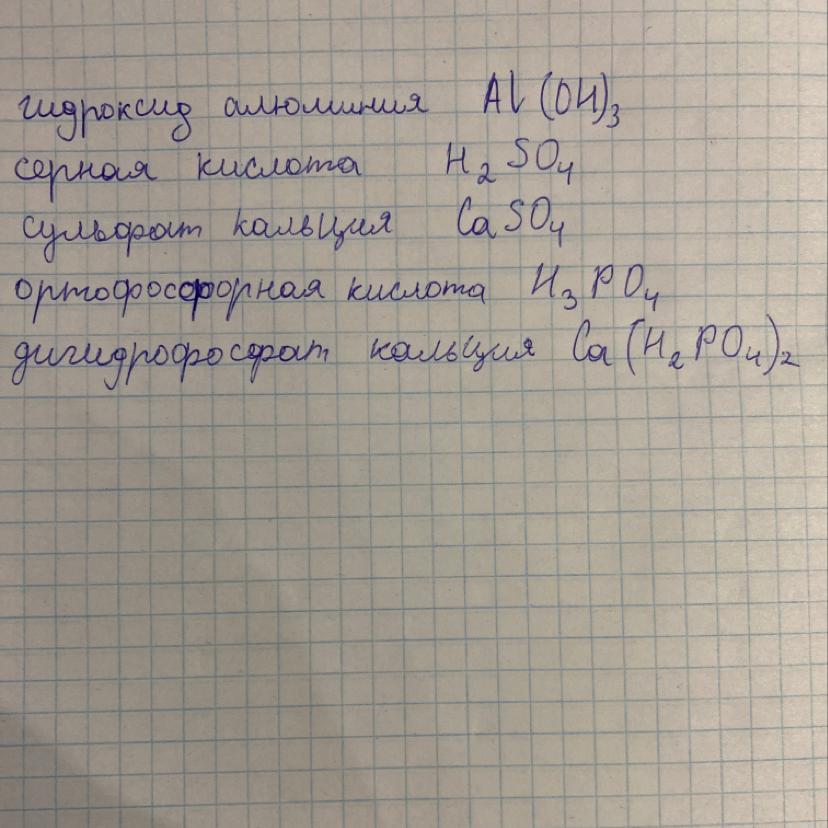 гидроксид алюминия Al(OH)₃
серная кислота H₂SO₄
сульфат кальция CaSO₄
ортофосфорная кислота H₃PO₄
дигидрофосфат кальция Ca(H₂PO₄)₂